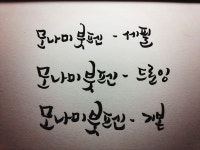 모나미붓펜 - 세필
모나미붓펜 - 드로잉
모나미붓펜 - 기본